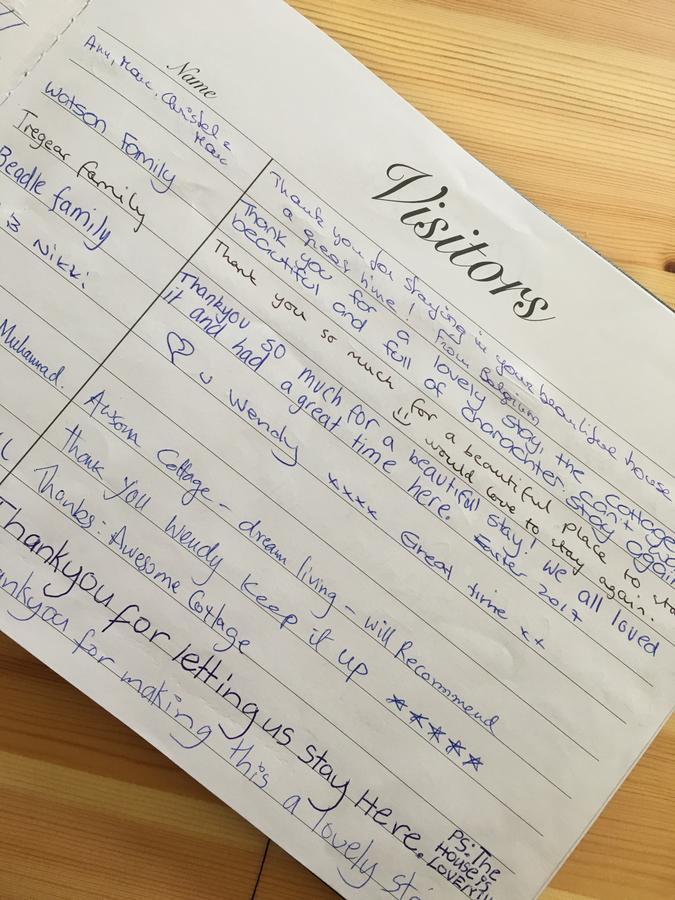 Name
Visitors
Ann, Marc, Christel &
Marc
Thank you for staying in your beautiful house
a great time! From Belgium
Watson Family
Thank you for a lovely stay, the cottage
beautiful and full of charachter. can't
stay again
Tregear family
Thank you so much for a beautiful place to
would love to stay again.
Beadle family
Thankyou so much for a beautiful stay! We all loved
it and had a great time here. Easter 2017
& Nikki
♡ u Wendy xxxx Great time xx
Muhammad.
Awsom Cottage - dream living - will Recommend
thank you Wendy keep it up *****
Thanks: Awesome Cottage
Thankyou for letting us stay Here.
PS: The
House is
LOVELY!!
for making this a lovely